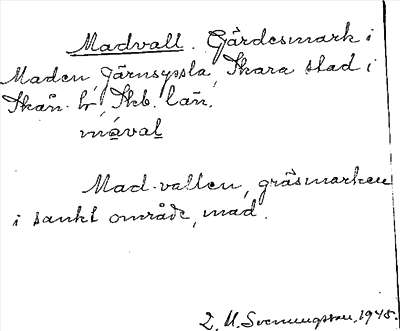 Madvall. Gärdesmark i
Maden, Järnsyssla, Skara stad i
Skån. hr, Skb. län.
maval
Mad-vallen, gräsmarken
i sankt område, mad.
Svenungsson, 1945.